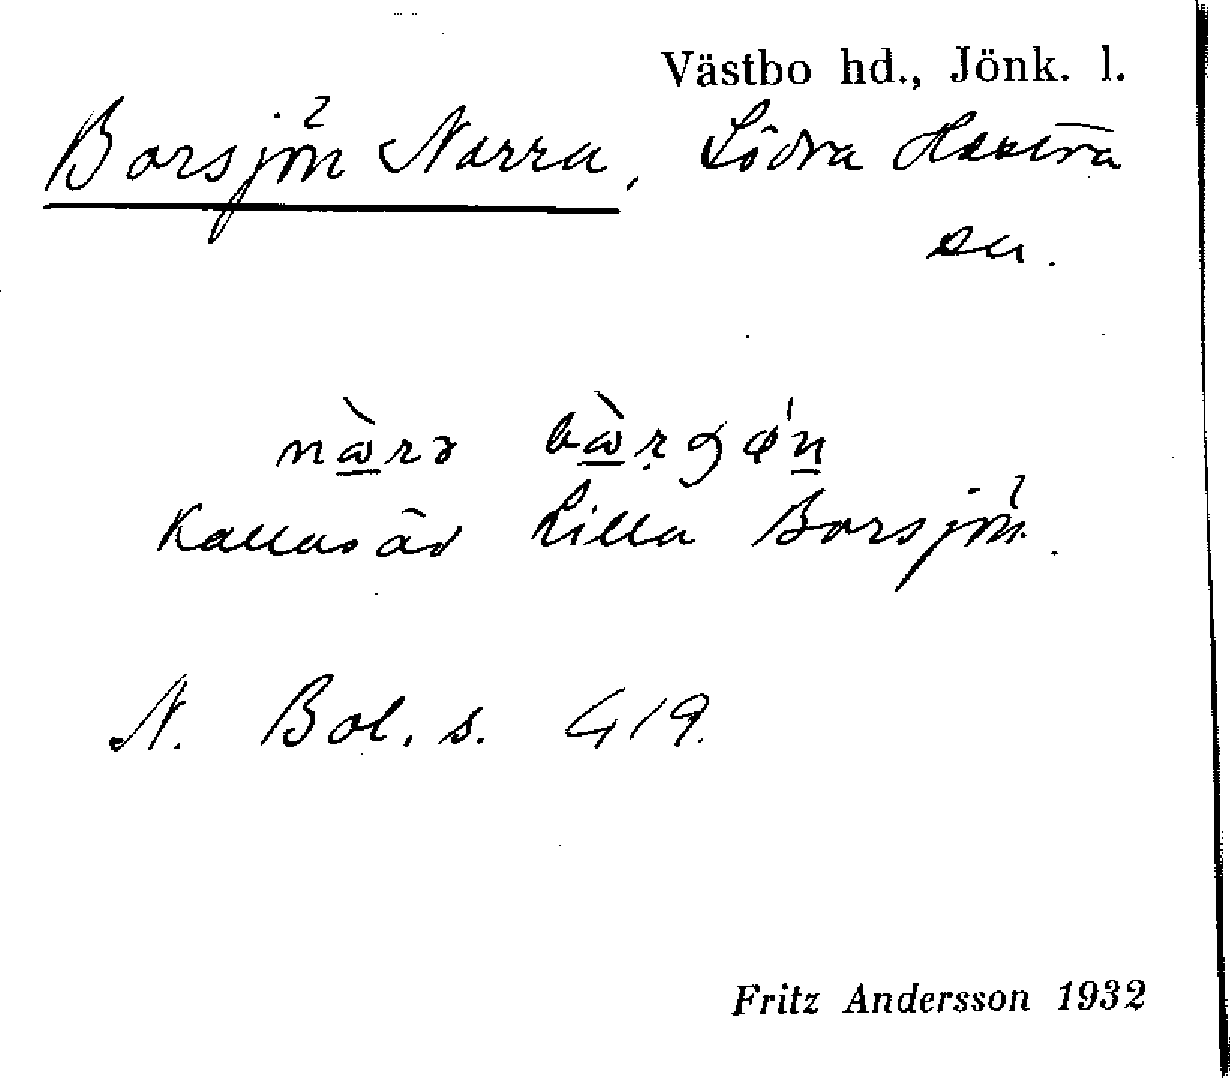 Västbo hd., Jönk. l.
Borsjön Norra, Södra Hestra
sn.
Kallas äv Lilla Borsjön.
N. Bol. s. 419.
Fritz Andersson 1932